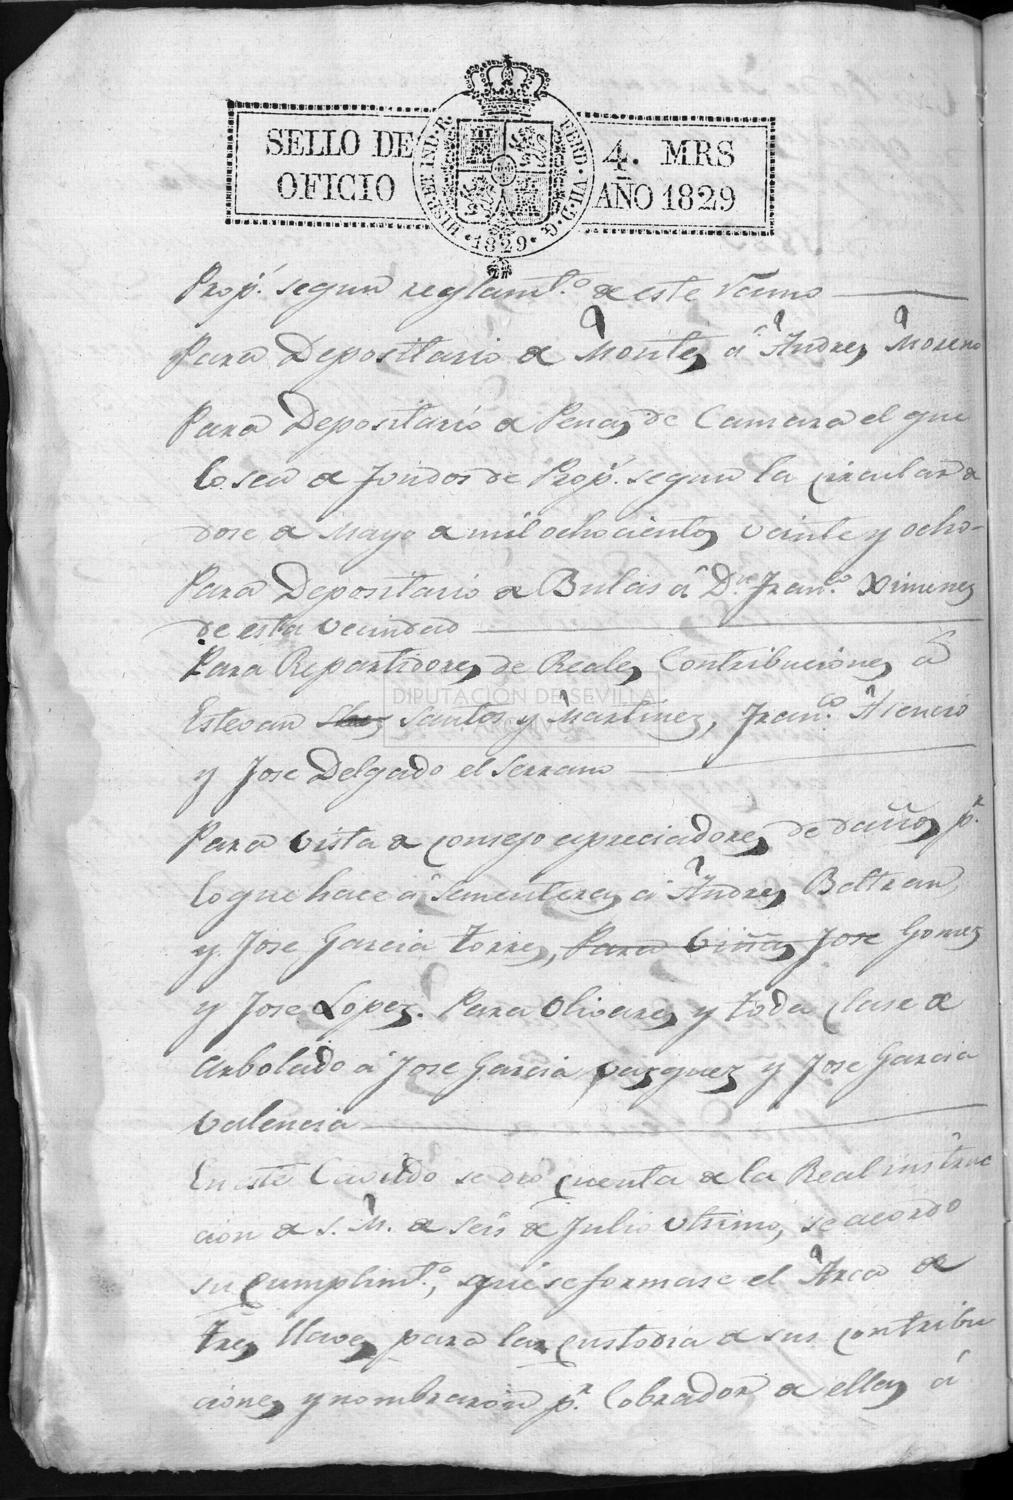 SELLO DE OFICIO
HISP. ET IND. R. FERD. VII. D. G. 1829
4. MRS AÑO 1829
Prop.s segun reglam.to de este Ramo
Para Depositario de Montes á Andres Moreno
Para Depositario de Penas de Camara el que
lo sea de fondos de Prop.s segun la circular de
dose de Mayo de mil ochocientos veinte y ocho
Para Depositario de Bulas á D.n Fran.co Ximenez
de esta vecindad
Para Repartidores de Reales Contribuciones á
Estevan Santos y Martinez, Fran.co Asencio
y Jose Delgado el Serrano
Para vista de consejo apreciadores de daños p.r
lo que hace á sementeras á Andres Beltran
y Jose Garcia torres, Para viñas Jose Gomez
y Jose Lopez. Para Olivares y toda clase de
Arbolado á Jose Garcia vazquez y Jose Garcia
valencia
En este Cavildo se dio cuenta de la Real instruc
cion de S. M. de seis de Julio ultimo, se acordo
su cumplim.to, que se formase el Arca de
tres llaves para la custodia de sus contribu
ciones y nombraron p.r Cobrador de ellas á
DIPUTACIÓN DE SEVILLA
ARCHIVO